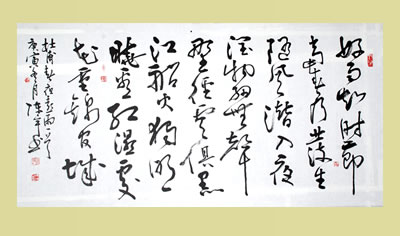 好雨知时節
當春乃發生
随风潜入夜
潤物細無聲
野徑雲俱黑
江船火獨明
曉看红濕處
花重錦官城
杜甫詩春夜喜雨一首
庚寅冬月陳